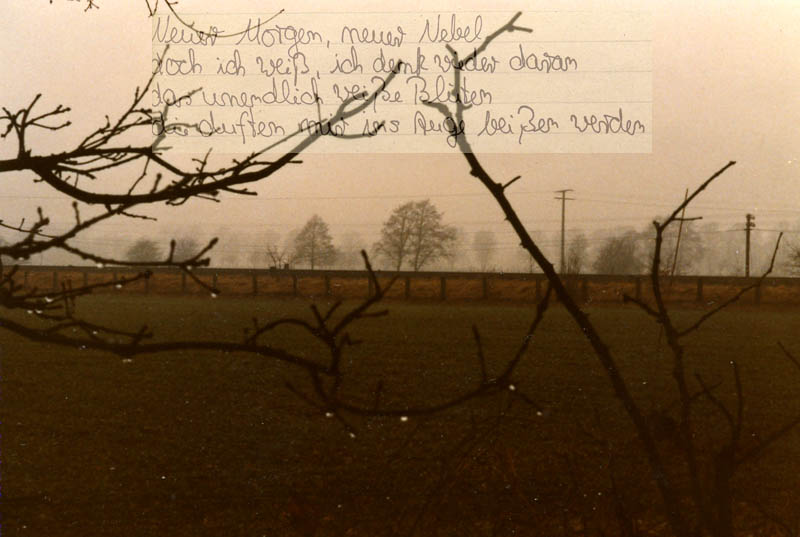 Neuer Morgen, neuer Nebel
doch ich weiß, ich denk wieder daran
das unendlich weiße Blüten
die duften mir ins Auge beißen werden